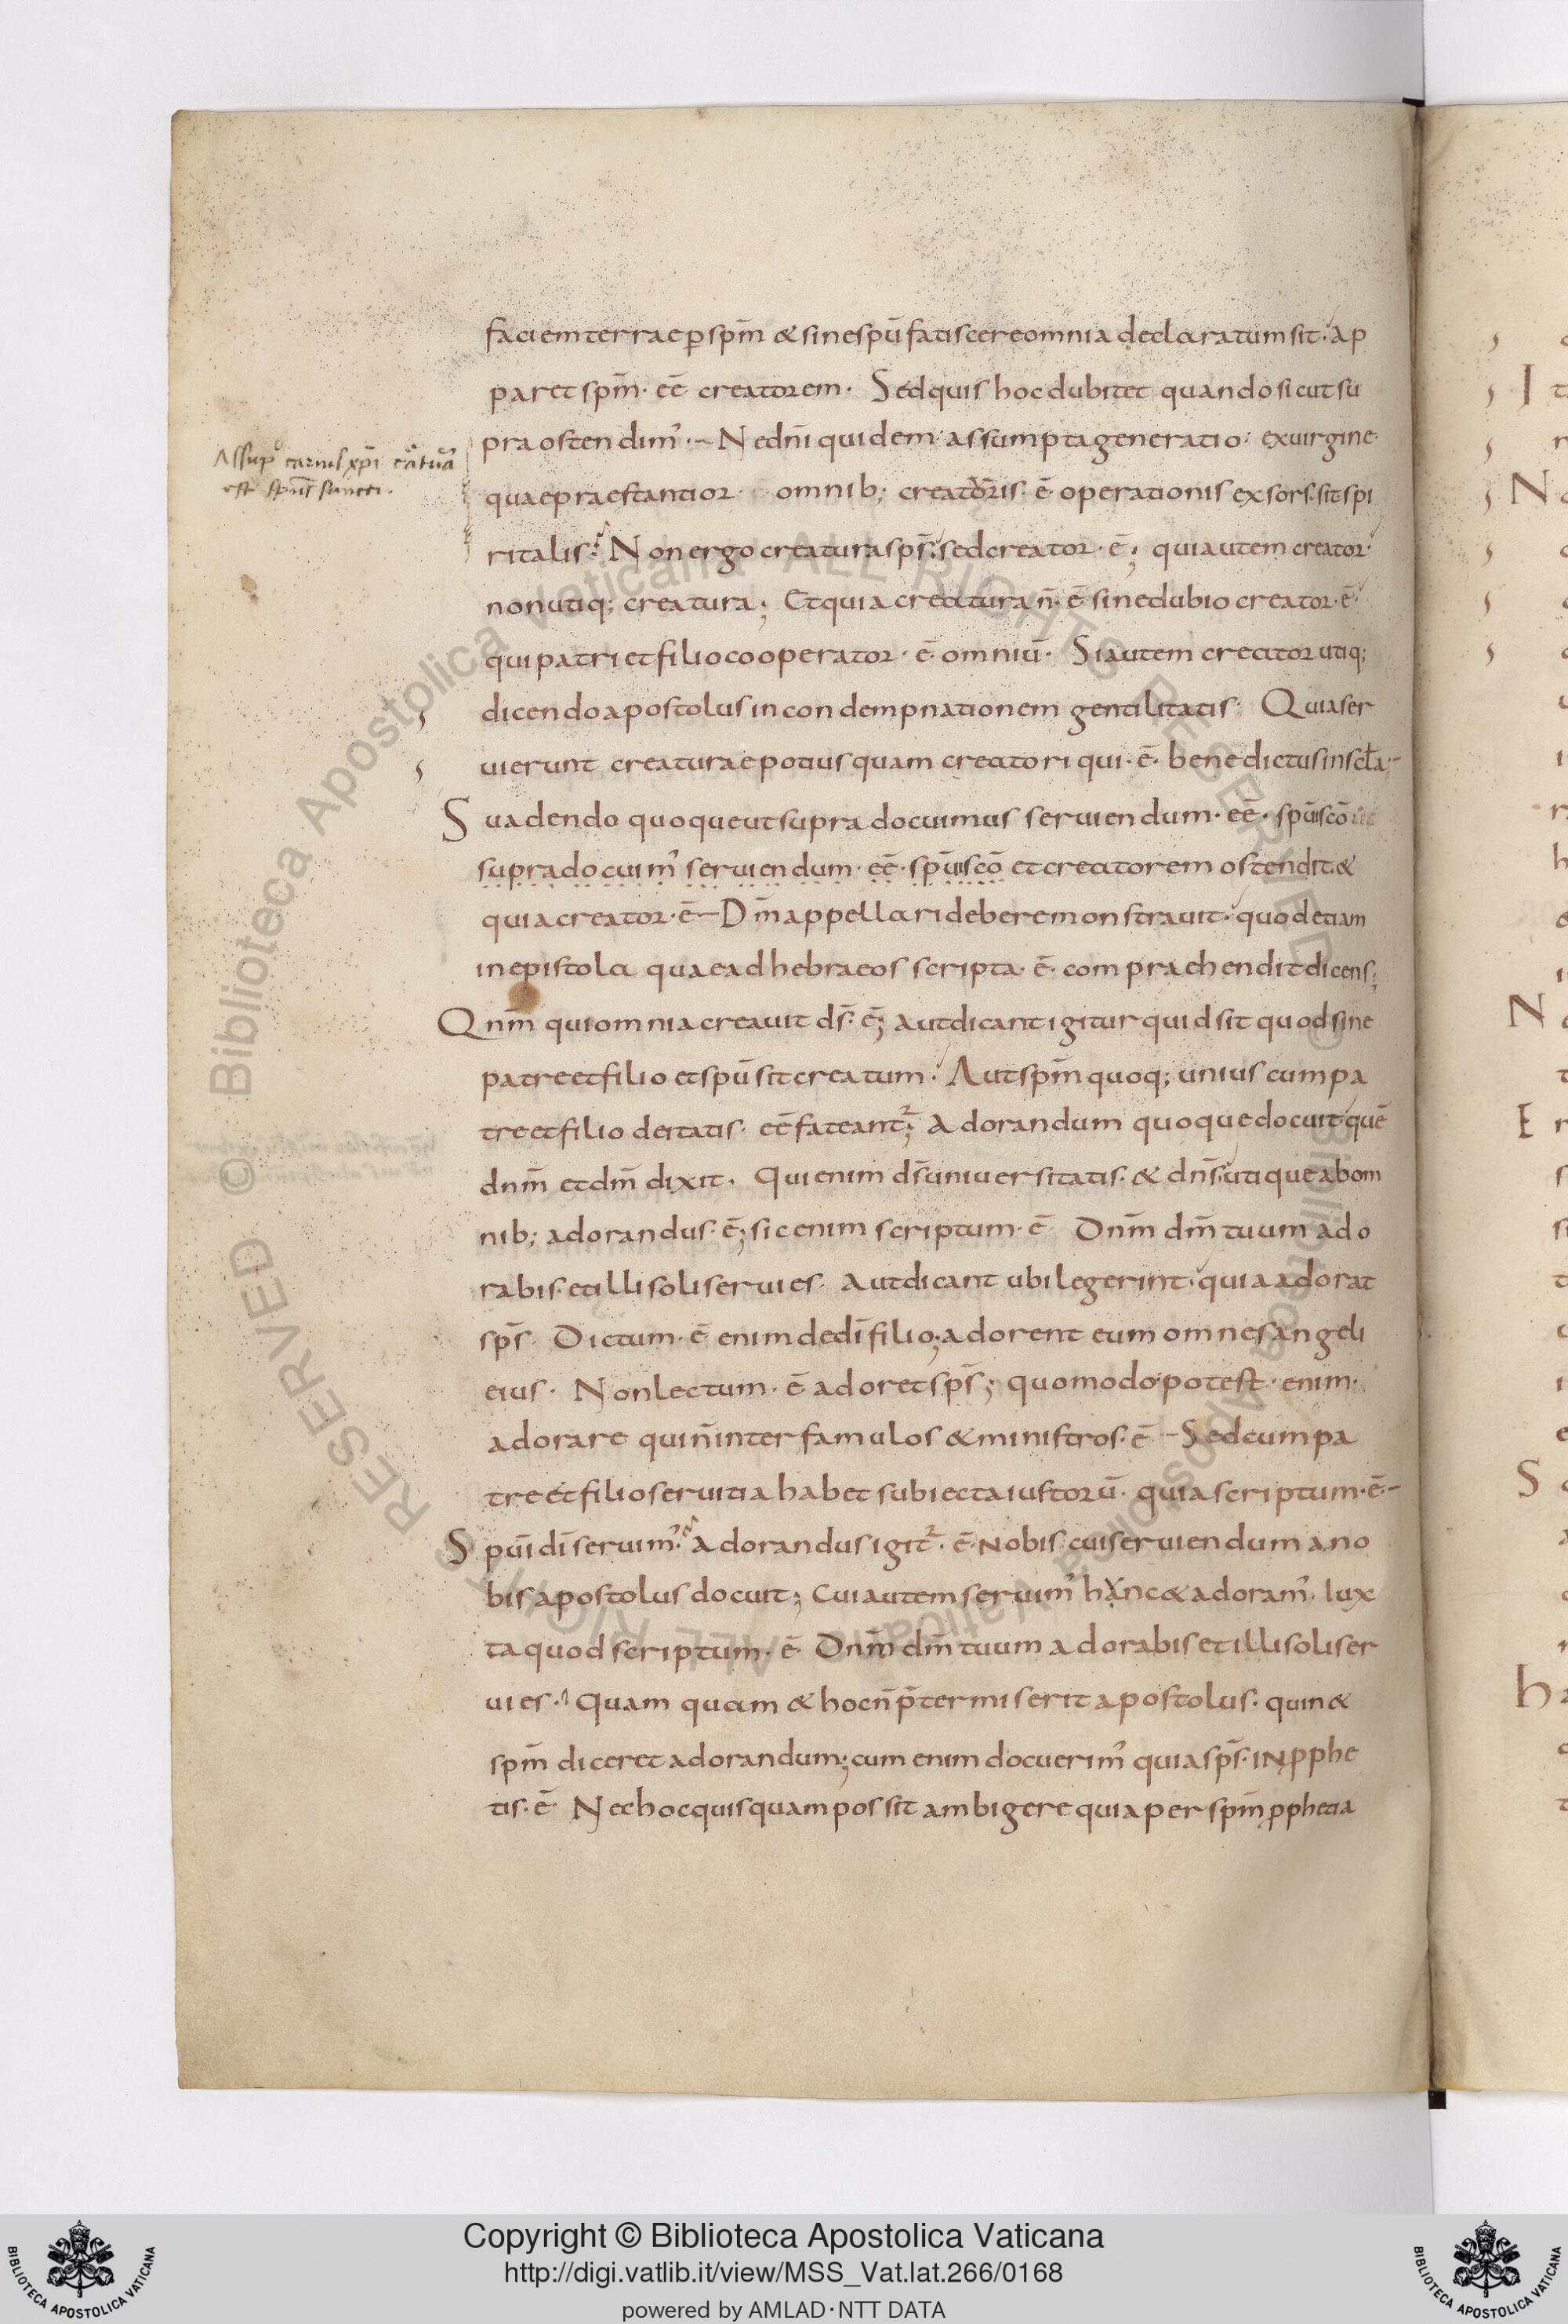 Assup° carnis xp̄i c̄atura
est sp̄us sancti.
faciem terrae p̱ sp̄m & sine sp̄u fatiscere omnia declaratum sit. ap
paret sp̄m. eē creatorem. Sed quis hoc dubitet quando sicut su
pra ostendim᾽. Ne dn̄i quidem assumpta generatio. ex virgine
quae praestantior omnib; creatoris. ē operationis exsors. sit spi
ritalis. Non ergo creatura sp̄s. sed creator. ē; qui autem creator
non utiq; creatura; Et quia creatura n̄. ē sine dubio creator. ē
qui patri et filio cooperator. ē omniū. Si autem creator utiq;
dicendo apostolus in condempnationem gentilitatis. Quia ser
vierunt creaturae potius quam creatori qui. ē. benedictus in scl̄a.
Suadendo quoque ut supra docuimus serviendum. eē. sp̄ui scō
supra docuim᾽ serviendum. eē. sp̄ui scō et creatorem ostendit. &
quia creator. ē D̄m appellari debere monstravit. quod etiam
in epistola quae ad hebraeos scripta. ē. compraehendit dicens;
Qnm̄ qui omnia creavit d̄s. ē; aut dicant igitur quid sit quod sine
patre et filio et sp̄u sit creatum. Aut sp̄m quoq; unius cum pa
tre et filio deitatis. eē fateant᾽; Adorandum quoque docuit quē
dnm̄ et dm̄ dixit. Qui enim d̄s universitatis. & dn̄s. utique ab om
nib; adorandus. ē; sic enim scriptum. ē Dnm̄ dm̄ tuum ado
rabis. et illi soli servies. Aut dicant ubi legerint. quia adorat
sp̄s. Dictum. ē enim de dī filio; adorent eum omnes angeli
eius. Non lectum. ē adoret sp̄s; quomodo potest. enim.
adorare qui n̄ inter famulos & ministros. ē Sed cum pa
tre et filio servitia habet subiecta iustorū. quia scriptum. ē
Sp̄ui dī servim᾽. Adorandus igit᾽. ē Nobis. cui serviendum a no
bis apostolus docuit; Cui autem servim᾽ hunc & adoram᾽. Iux
ta quod scriptum. ē. Dnm̄ dm̄ tuum adorabis et illi soli ser
vies. Quamquam & hoc n̄ p̄termiserit apostolus. quin &
sp̄m diceret adorandum; cum enim docuerim᾽ quia sp̄s. IN pphe
tis. ē. Nec hoc quisquam possit ambigere quia per sp̄m pphetia
Copyright © Biblioteca Apostolica Vaticana
http://digi.vatlib.it/view/MSS_Vat.lat.266/0168
powered by AMLAD·NTT DATA
BIBLIOTECA APOSTOLICA VATICANA
BIBLIOTECA APOSTOLICA VATICANA